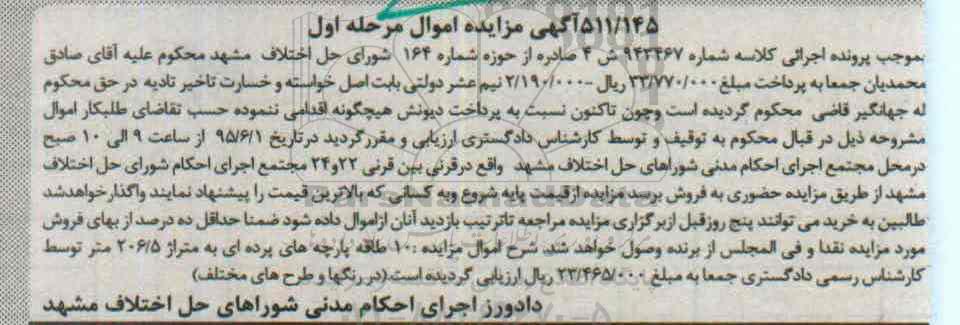 ۵۱۱/۱۴۵آگهی مزایده اموال مرحله اول
بموجب پرونده اجرائی کلاسه شماره ۹۴۳۴۶۷ ش ۴ صادره از حوزه شماره ۱۶۴ شورای حل اختلاف مشهد محکوم علیه آقای صادق
محمدیان جمعا به پرداخت مبلغ ۳۳/۷۷۰/۰۰۰ ریال -۲/۱۹۰/۰۰۰ نیم عشر دولتی بابت اصل خواسته و خسارت تاخیر تادیه در حق محکوم
له جهانگیر قاضی محکوم گردیده است وچون تاکنون نسبت به پرداخت دیونش هیچگونه اقدامی ننموده حسب تقاضای طلبکار اموال
مشروحه ذیل در قبال محکوم به توقیف و توسط کارشناس دادگستری ارزیابی و مقرر گردید در تاریخ ۹۵/۶/۱ از ساعت ۹ الی ۱۰ صبح
درمحل مجتمع اجرای احکام مدنی شوراهای حل اختلاف مشهد واقع درقرنی بین قرنی ۲۲و۲۴ مجتمع اجرای احکام شورای حل اختلاف
مشهد از طریق مزایده حضوری به فروش برسد مزایده ازقیمت پایه شروع وبه کسانی که بالاترین قیمت را پیشنهاد نمایند واگذار خواهدشد
طالبین به خرید می توانند پنج روزقبل ازبرگزاری مزایده مراجعه تاترتیب بازدید آنان ازاموال داده شود ضمنا حداقل ده درصد از بهای فروش
مورد مزایده نقدا و فی المجلس از برنده وصول خواهد شد. شرح اموال مزایده :۱۰ طاقه پارچه های پرده ای به متراژ ۲۰۶/۵ متر توسط
کارشناس رسمی دادگستری جمعا به مبلغ ۲۳/۴۶۵/۰۰۰ ریال ارزیابی گردیده است.(در رنگها و طرح های مختلف)
دادورز اجرای احکام مدنی شوراهای حل اختلاف مشهد